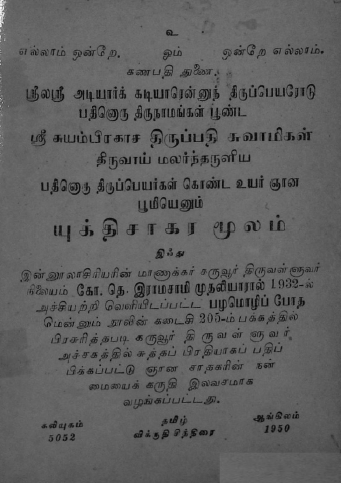 உ
எல்லாம் ஒன்றே. ஓம் ஒன்றே எல்லாம்.
கணபதி துணை.
ஸ்ரீலஸ்ரீ அடியார்க் கடியாரென்னுந் திருப்பெயரோடு
பதினொரு திருநாமங்கள் பூண்ட
ஸ்ரீ சுயம்பிரகாச திருப்பதி சுவாமிகள்
திருவாய் மலர்ந்தருளிய
பதினொரு திருப்பெயர்கள் கொண்ட உயர் ஞான
பூமியெனும்
யுக்திசாகர மூலம்
இஃது
இன்னூலாசிரியரின் மாணாக்கர் கரூவூர் திருவள்ளுவர்
நிலையம் கோ. தெ. இராமசாமி முதலியாரால் 1932-ல்
அச்சியற்றி வெளியிடப்பட்ட பழமொழிப் போத
மென்னும் நூலின் கடைசி 205-ம் பக்கத்தில்
பிரசுரித்தபடி கருவூர் திருவள்ளுவர்
அச்சகத்தில் சுத்தப் பிரதியாகப் பதிப்
பிக்கப்பட்டு ஞான சாதகரின் நன்
மையைக் கருதி இலவசமாக
வழங்கப்பட்டது.
கலியுகம் தமிழ் ஆங்கிலம்
5052 விக்ருதி சித்திரை 1950